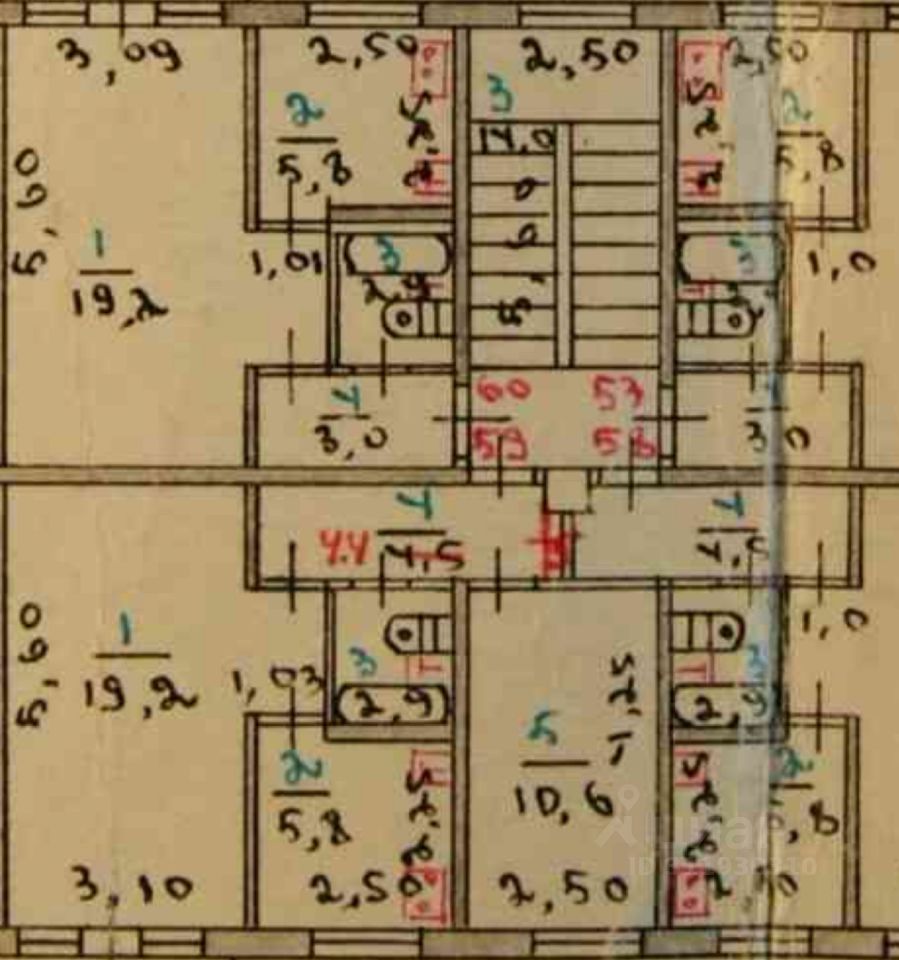 3,09
2,50
2,50
2,50
2
5,8
2,25
3
14,0
2,25
2
5,8
5,60
1
19,2
1,01
3
2,9
5,60
3
1,0
4
3,0
60
59
53
58
4
3,0
4
44
4,5
4
4,5
5,60
1
19,2
1,03
3
2,9
5
10,6
4,25
3
2,9
1,0
2
5,8
2,25
2,25
2
5,8
3,10
2,50
2,50